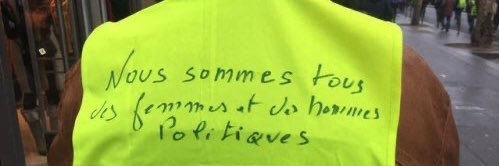 Nous sommes tous
des femmes et des hommes
Politiques